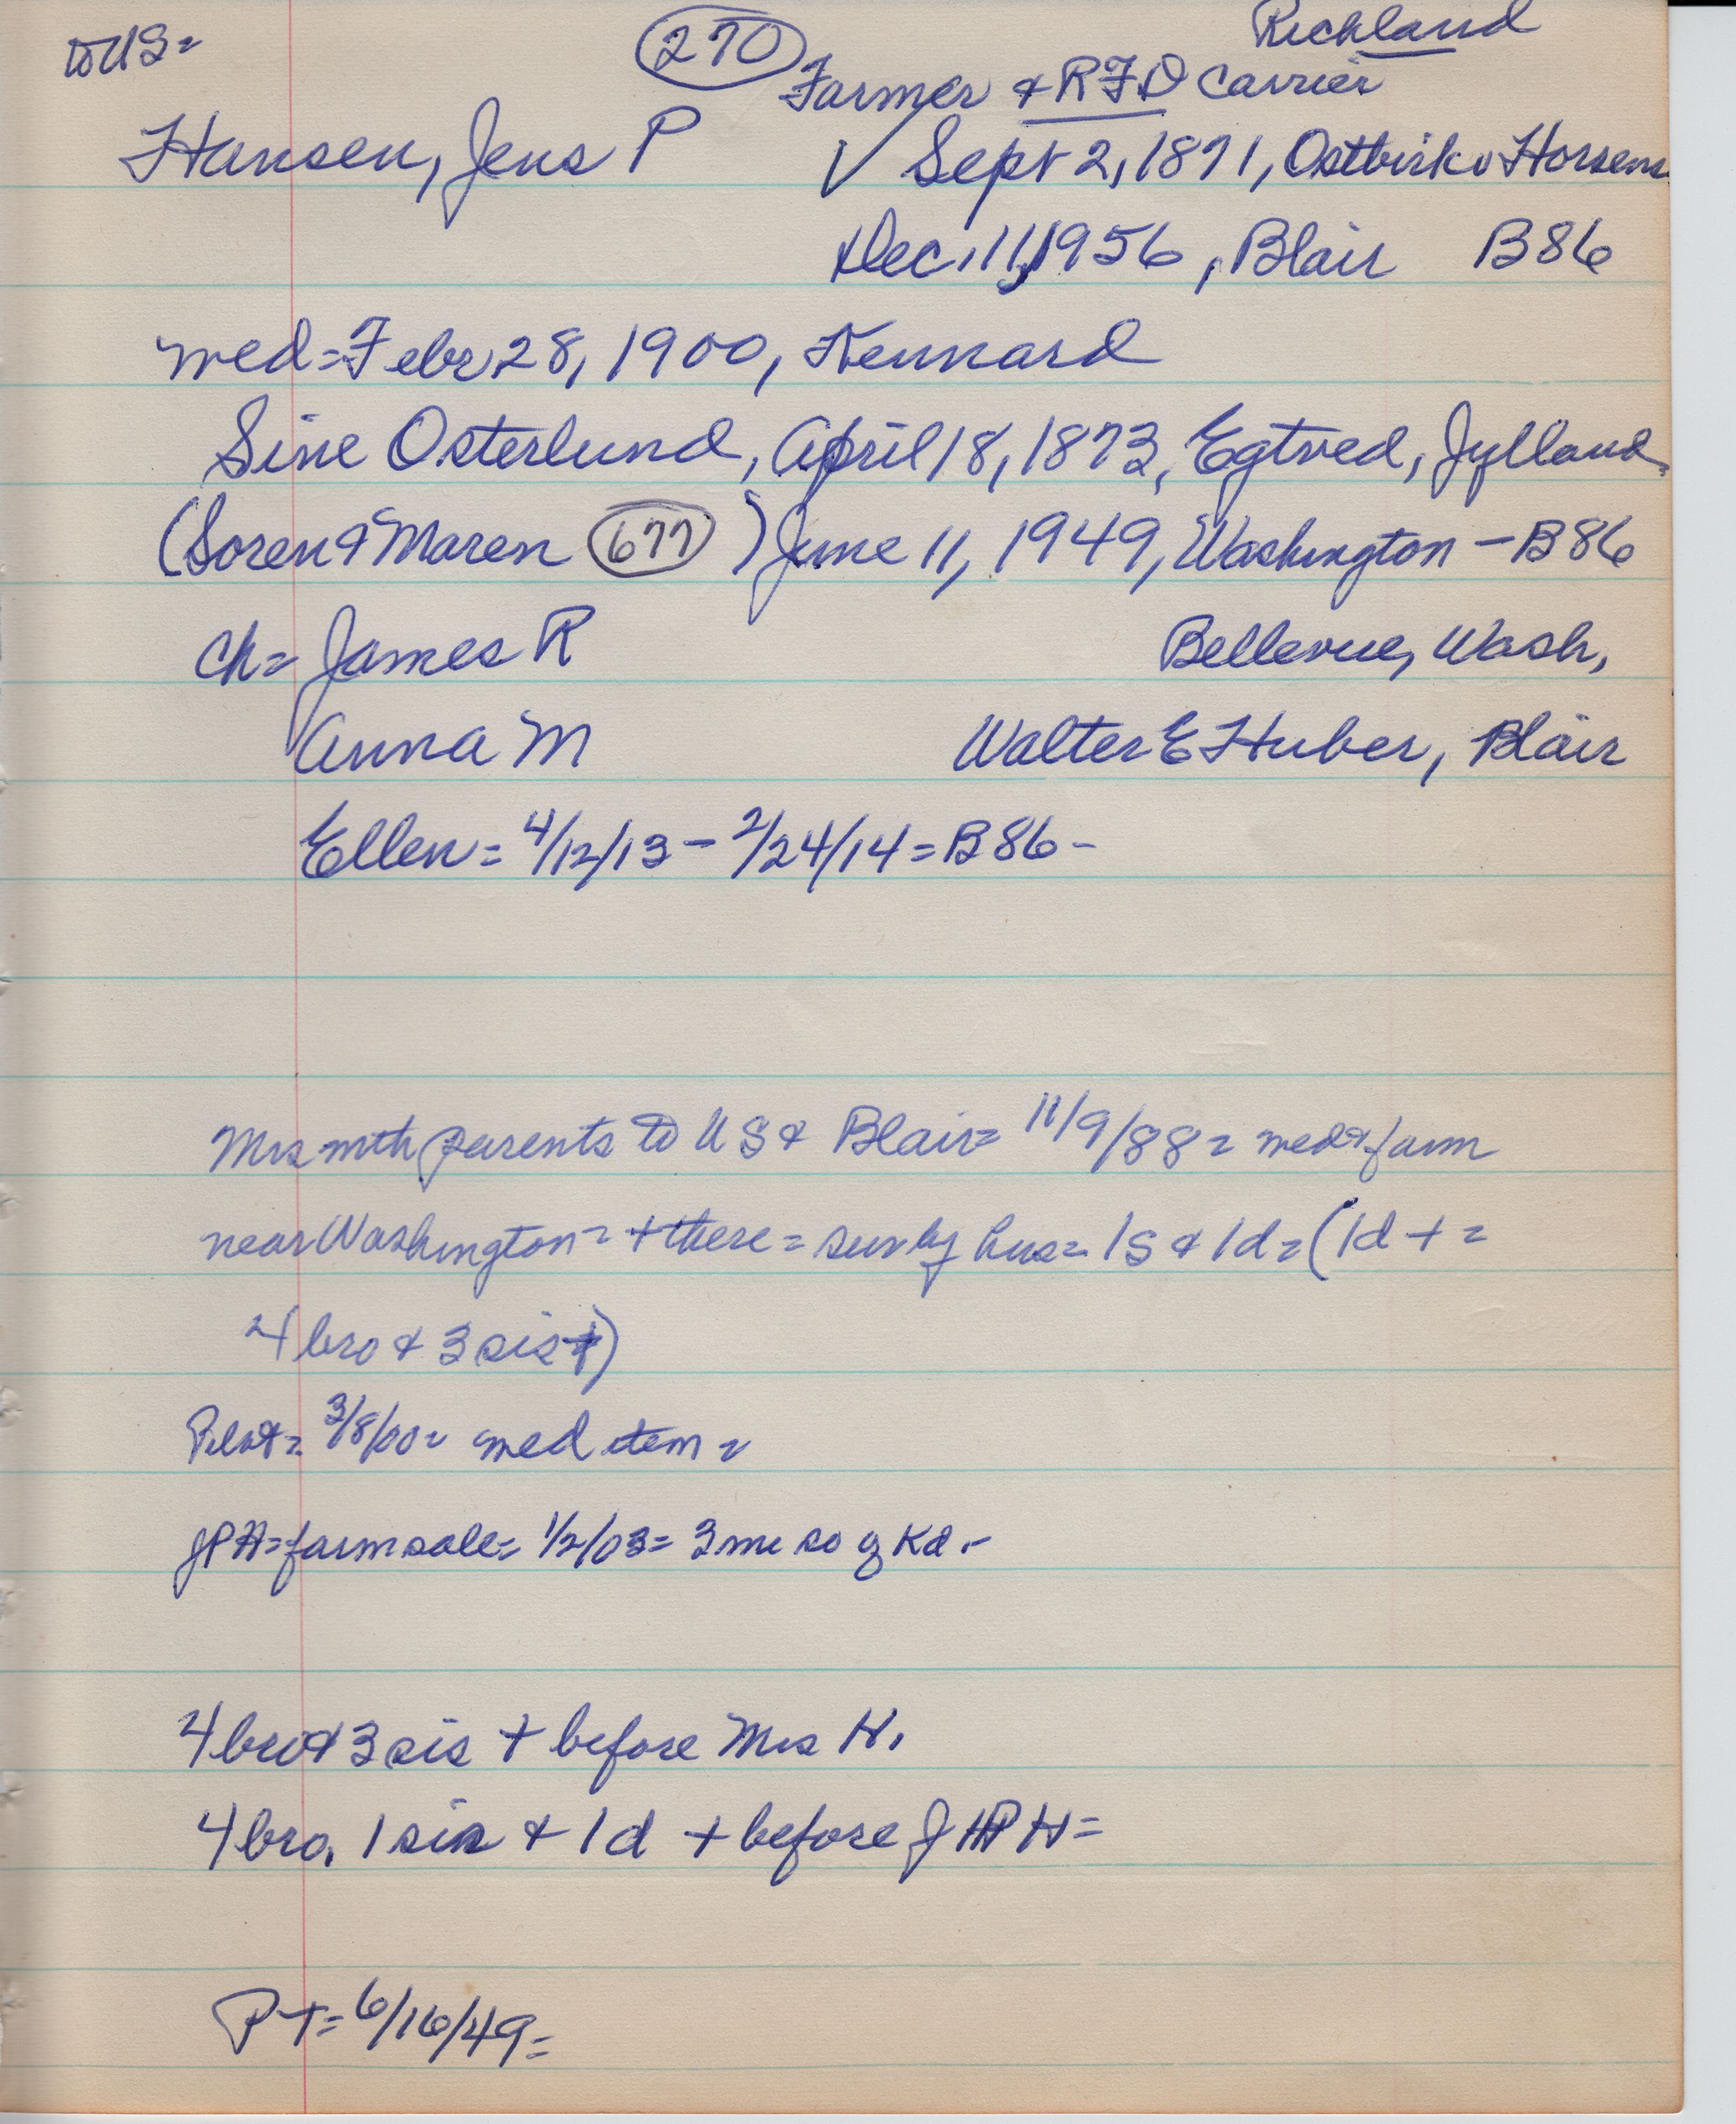 to US=
270
Richland
Farmer & RFD Carrier
Hansen, Jens P ✓ Sept 2, 1871, Ostbirk v Horsens
Dec. 11, 1956, Blair B86
wed = Febr 28, 1900, Kennard
Sine Osterlund, April 18, 1873, Egtved, Jylland
(Soren & Maren 677) June 11, 1949, Washington - B86
Ch= James R Bellevue, Wash,
Anna M Walter E Huber, Blair
Ellen = 4/12/13 - 2/24/14 = B86 -
Mrs mth parents to US & Blair= 11/9/88= wed & farm
near Washington= + there = surv by hus= 1s & 1d= (1d + =
4 bro & 3 sis +)
3/8/00= wed item=
JPH=farm sale= 1/2/03= 3 mi so of Kd.-
4 bro & 3 sis + before Mrs H.
4 bro. 1 sis & 1d + before J P H=
PT= 6/16/49=